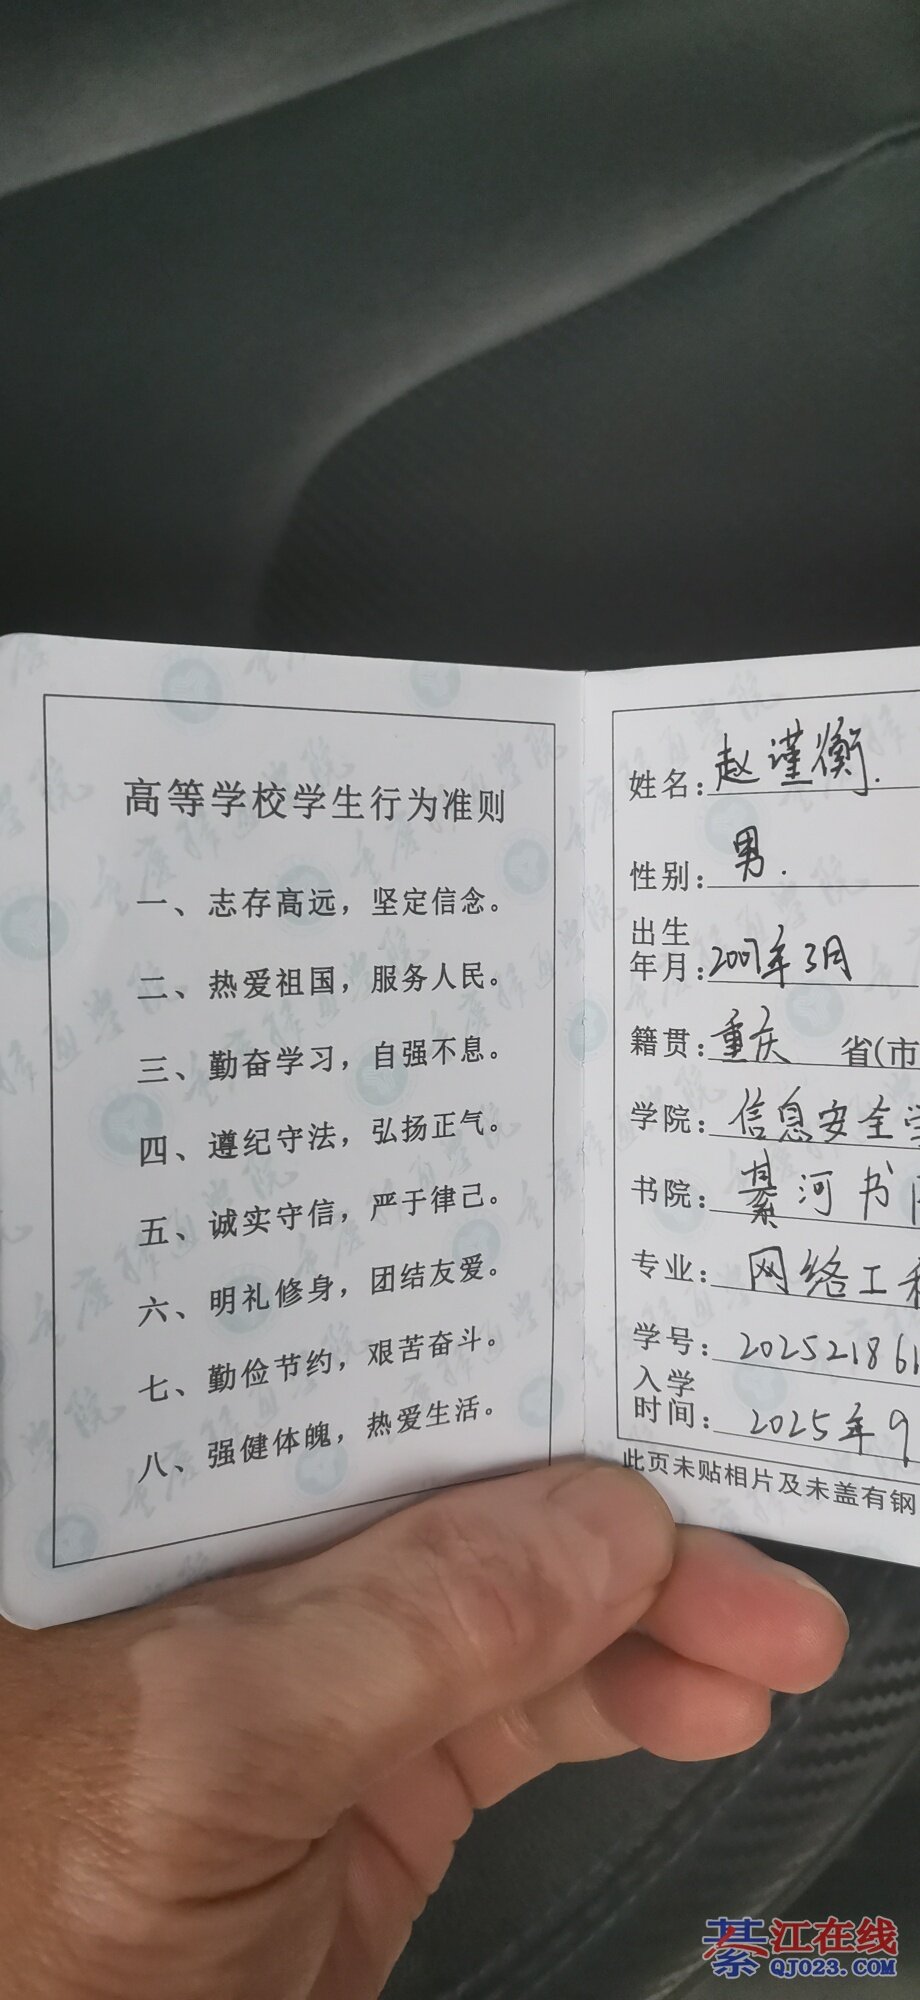 高等学校学生行为准则
一、志存高远，坚定信念。
二、热爱祖国，服务人民。
三、勤奋学习，自强不息。
四、遵纪守法，弘扬正气。
五、诚实守信，严于律己。
六、明礼修身，团结友爱。
七、勤俭节约，艰苦奋斗。
八、强健体魄，热爱生活。
姓名：赵谨衡.
性别：男.
出生
年月：2007年3月
籍贯：重庆 省(市
学院：信息安全学
书院：綦河书
专业：网络工程
学号：202521861
入学
时间：2025年9
此页未贴相片及未盖有钢
綦江在线
QJ023.COM